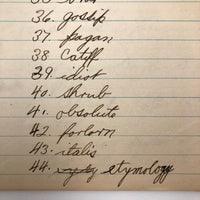 36. gossip
37. pagan
38 Catiff
39. idiot
40. shrub
41. obsolute
42. forlorn
43. italis
44. etymology